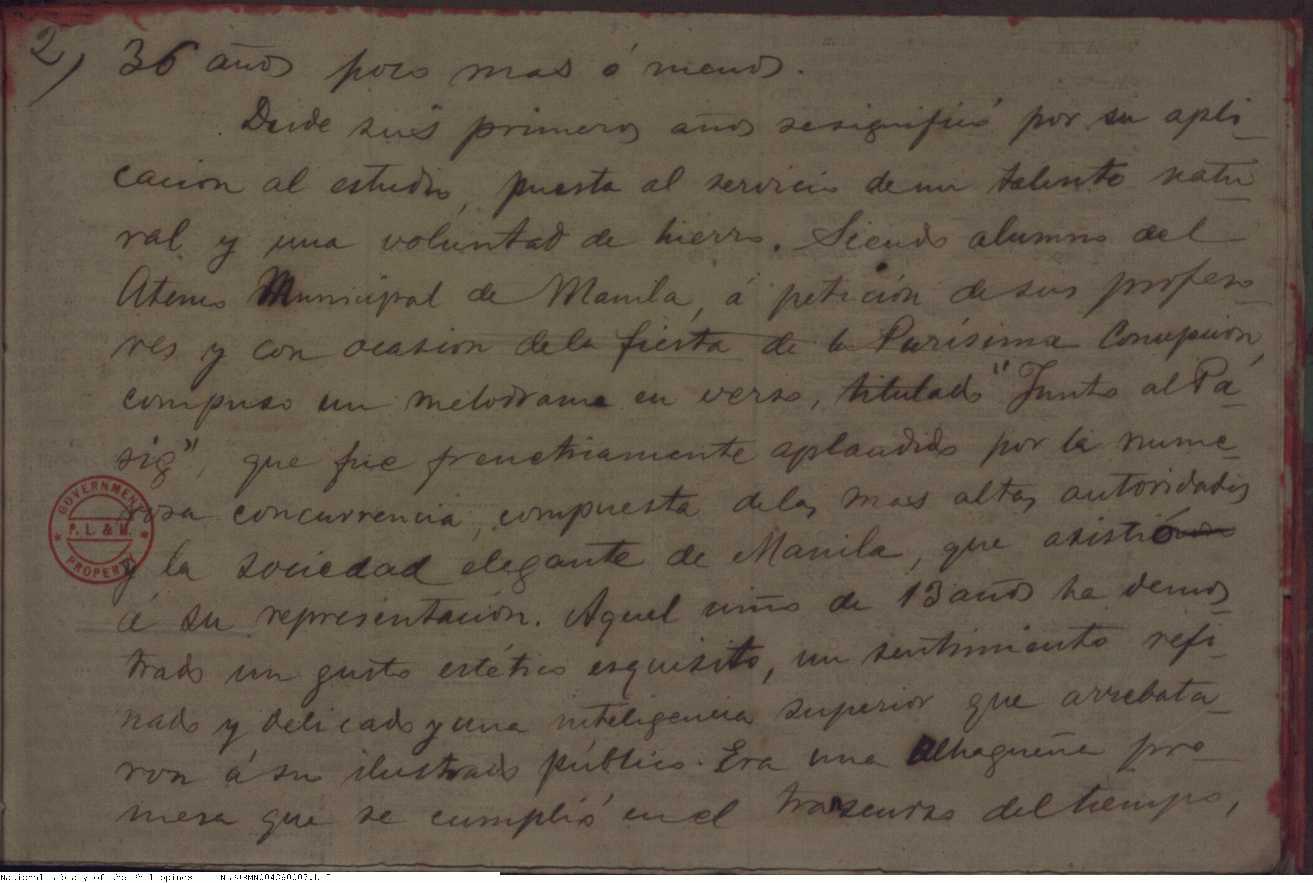 2) 36 años poco mas ó menos.
Desde sus primeros años se significó por su apli-
cacion al estudio, puesta al servicio de un talento natu-
ral y una voluntad de hierro. Siendo alumno del
Ateneo Municipal de Manila, á petición de sus profeso-
res y con ocasion de la fiesta de la Purísima Concepcion,
compuso un melodrama en verso, titulado "Junto al Pa-
sig", que fue freneticamente aplaudido por la nume-
rosa concurrencia, compuesta de las mas altas autoridades
y la sociedad elegante de Manila, que asistió
á su representación. Aquel niño de 13 años ha demos-
trado un gusto estético esquisito, un sentimiento refi-
nado y delicado y una inteligencia superior que arrebata-
ron á su ilustrado público. Era una alhagueña pro-
mesa que se cumplió en el trascurso del tiempo,
GOVERNMENT
P. L. & M.
PROPERTY
National Library of the Philippines